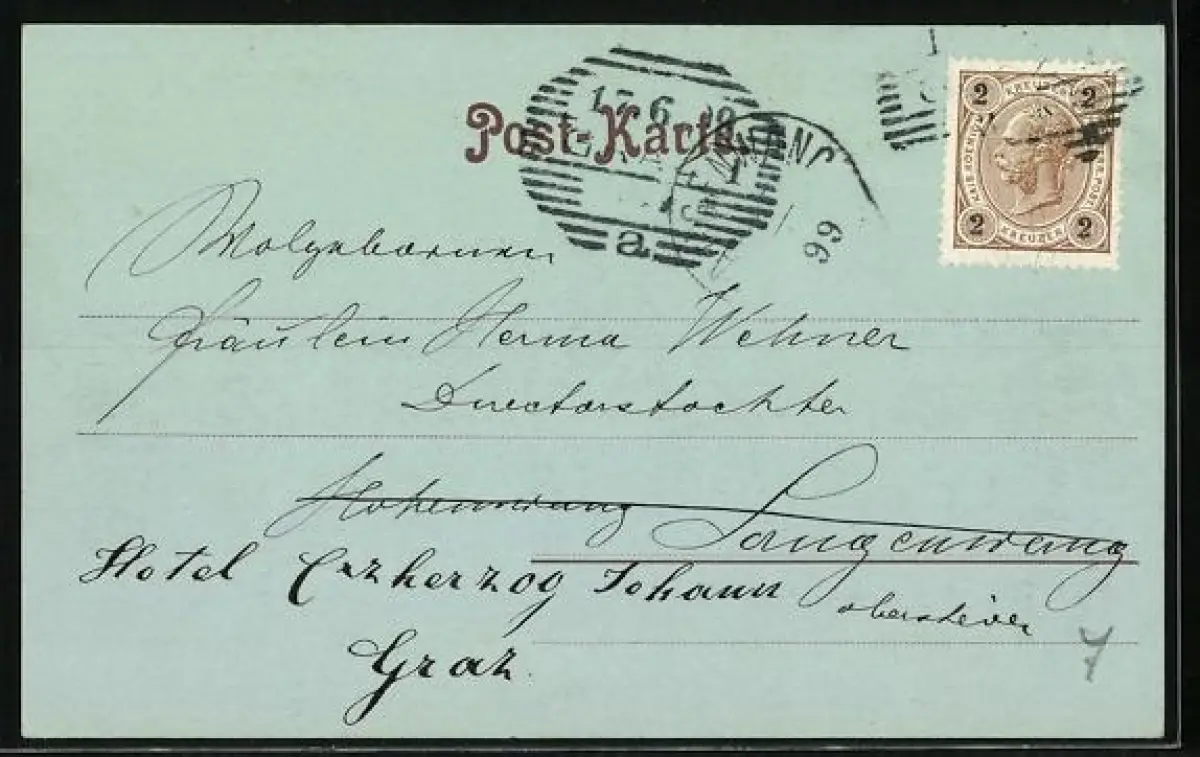 Post-Karte
17 6
a
99
2 KREUZER 2
2 KREUZER 2
Wolgeborenen
Fräulein Herma Wehner
Directorstochter
Hohenwang Langenwang
Hotel Erzherzog Johann
obersteier
Graz.
7